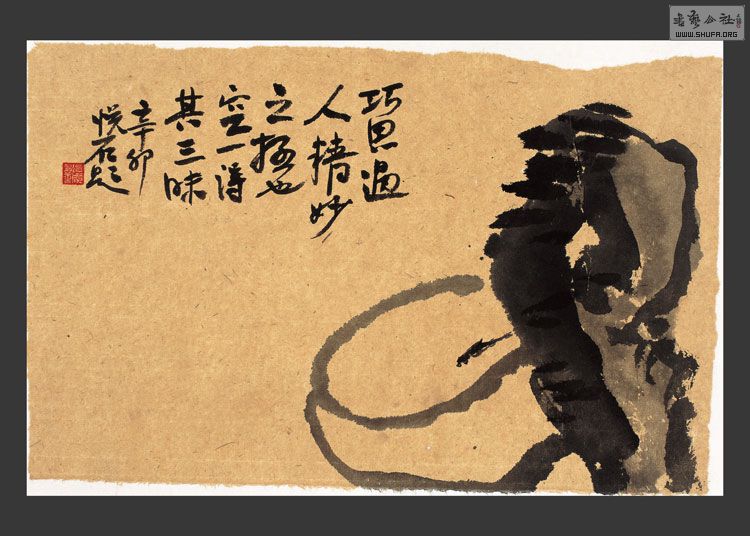 書藝公社
WWW.SHUFA.ORG
巧思過
人精妙
之極也
空一得
其三昧
辛卯
悦石題